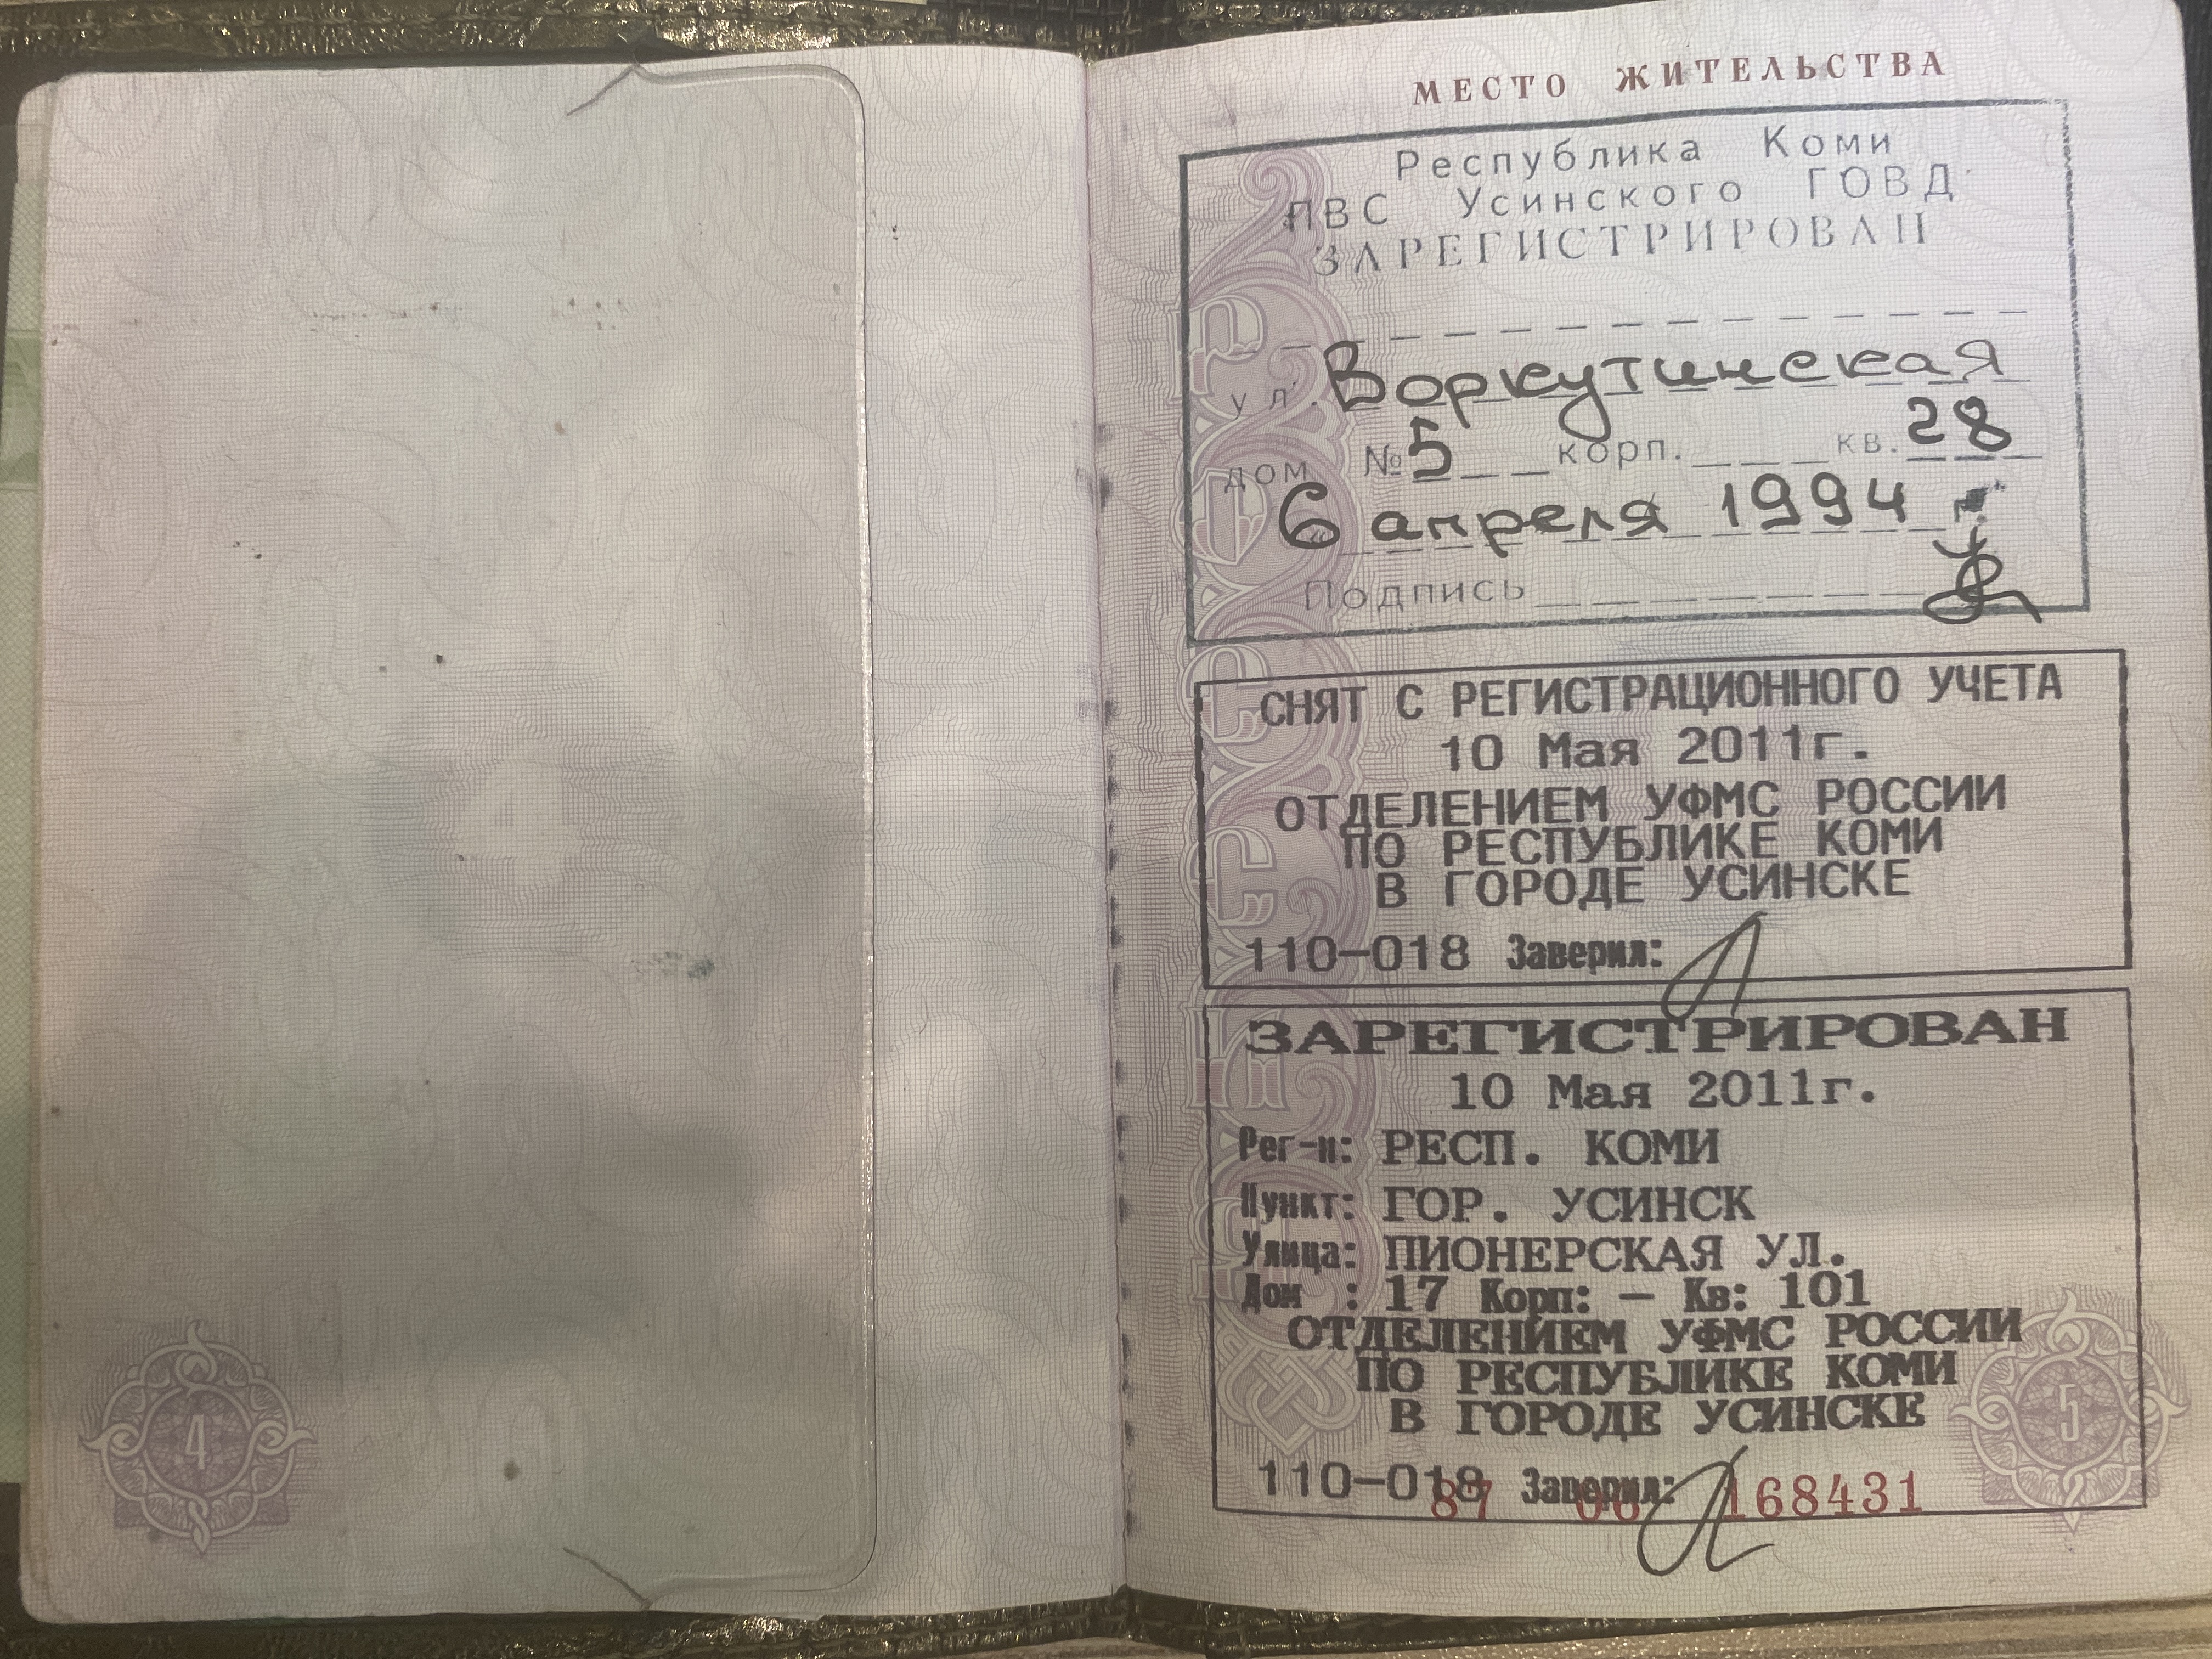 4
МЕСТО ЖИТЕЛЬСТВА
Республика Коми
ПВС Усинского ГОВД
ЗАРЕГИСТРИРОВАН
ул. Воркутинская
дом № 5 корп. кв. 28
6 апреля 1994 г
Подпись
СНЯТ С РЕГИСТРАЦИОННОГО УЧЕТА
10 Мая 2011г.
ОТДЕЛЕНИЕМ УФМС РОССИИ
ПО РЕСПУБЛИКЕ КОМИ
В ГОРОДЕ УСИНСКЕ
110-018 Заверил:
ЗАРЕГИСТРИРОВАН
10 Мая 2011г.
Рег-н: РЕСП. КОМИ
Пункт: ГОР. УСИНСК
Улица: ПИОНЕРСКАЯ УЛ.
Дом : 17 Корп: - Кв: 101
ОТДЕЛЕНИЕМ УФМС РОССИИ
ПО РЕСПУБЛИКЕ КОМИ
В ГОРОДЕ УСИНСКЕ
110-018 Заверил:
87 168431
5